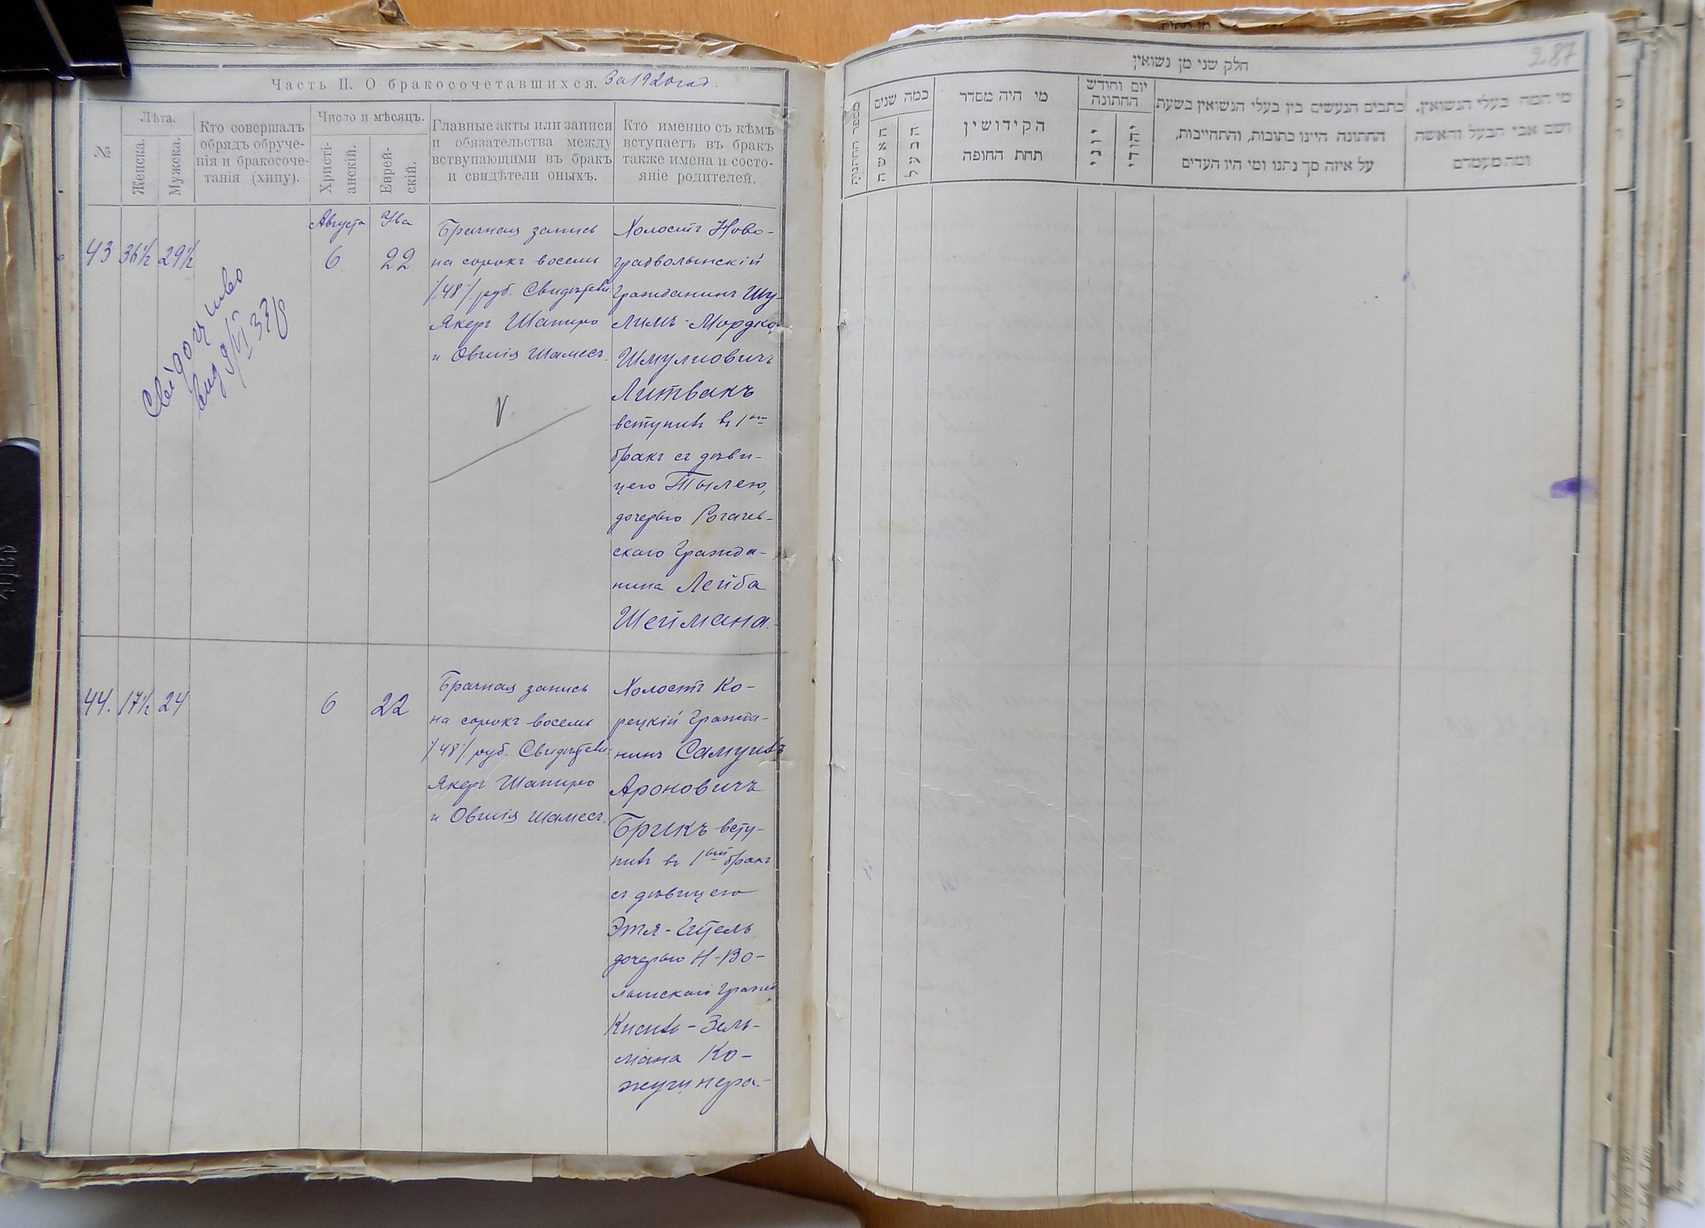 Часть II. О бракосочетавшихся. За 1920 год.
№
Лѣта.
Женска.
Мужска.
Кто совершалъ
обрядъ обруче-
нія и бракосоче-
танія (хипу).
Число и мѣсяцъ.
Христі-
анскій.
Еврей-
скій.
Главные акты или записи
и обязательства между
вступающими въ бракъ
и свидѣтели оныхъ.
Кто именно съ кѣмъ
вступаетъ въ бракъ
также имена и состо-
яніе родителей.
43
36½
29½
Свідоцтво
Августа
6
Ава
22
Брачная запись
на сорокъ восемь
/48/ руб. Свидѣтели
Якеръ Шапиро
и Овшія Шамесъ.
V
Холостъ Ново-
градволынскій
Гражданинъ Шу-
лимъ-Мордко
Шмулиовичъ
Литвакъ
вступилъ въ 1ый
бракъ съ дѣви-
цею Тылею,
дочерью Рогачев-
скаго Гражда-
нина Лейба
Шеймана.
44.
17½
24
6
22
Брачная запись
на сорокъ восемь
/48/ руб. Свидѣтели
Якеръ Шапиро
и Овшія Шамесъ.
Холостъ Ко-
рецкій Гражда-
нинъ Самуилъ
Ароновичъ
Брикъ всту-
пилъ въ 1ый бракъ
съ дѣвицею
Этл-Гитель
дочерью Н-Во-
лынскаго Гражд.
Кисиль-Зель-
мана Ко-
жушнера.
287
חלק שני מן נשואין
מספר החתונות
כמה שנים
האשה
הבעל
מי היה מסדר
הקידושין
תחת החופה
יום וחודש
החתונה
יוני
יהודי
כתבים הנעשים בין בעלי הנשואין בשעת
החתונה היינו כתובות, והתחייבות,
על איזה סך נתנו ומי היו העדים
מי המה בעלי הנשואין,
ושם אבי הבעל והאשה
ומה מעמדם